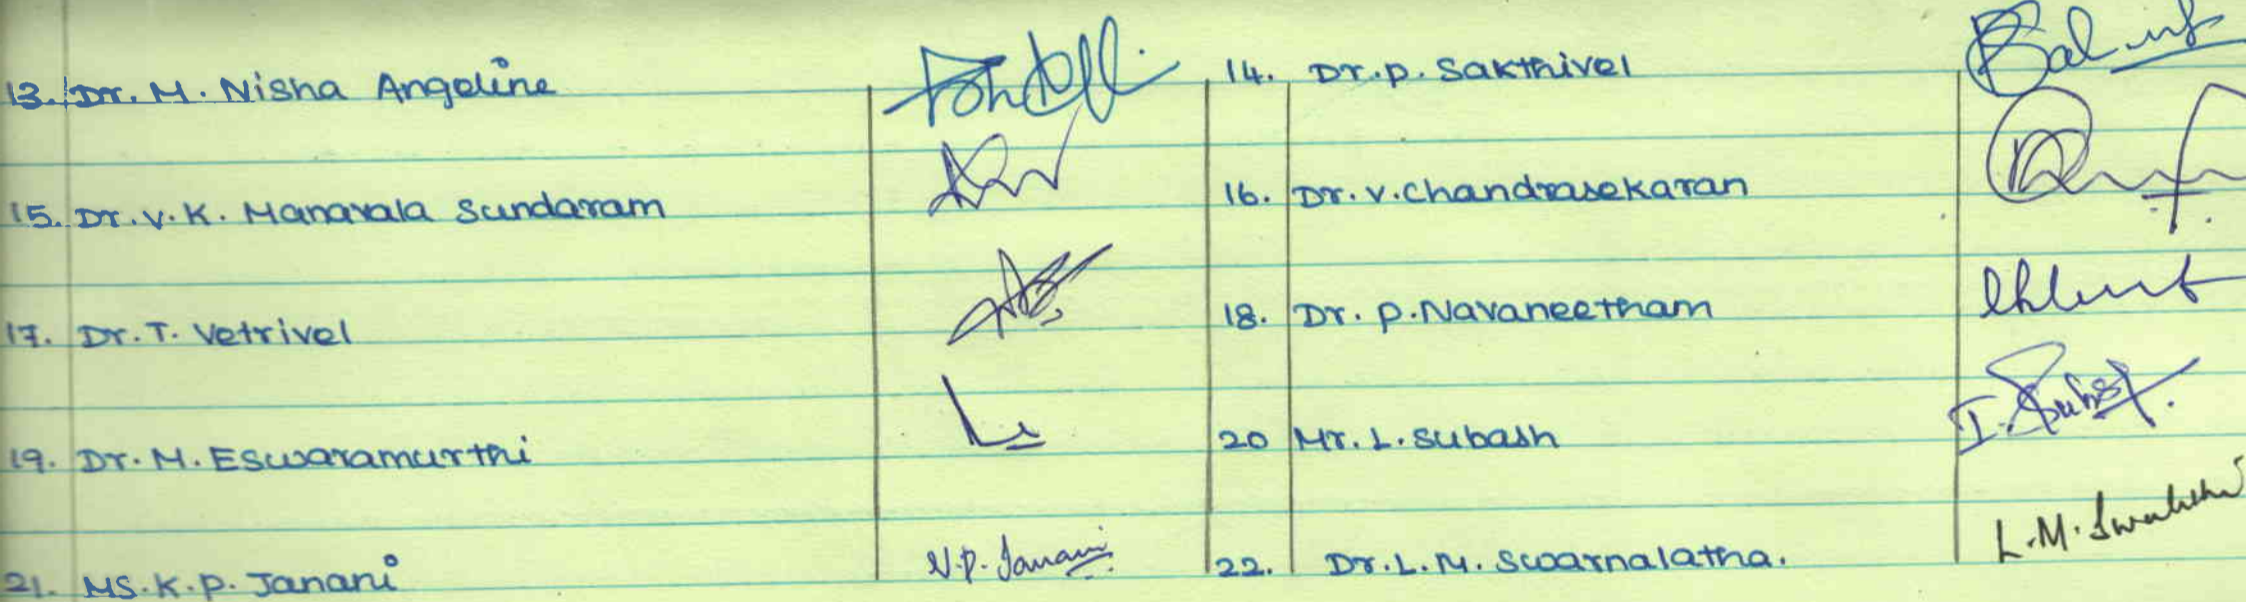 13. Dr. M. Nisha Angeline 14. Dr. P. Sakthivel
15. Dr. V. K. Manavala Sundaram 16. Dr. V. Chandrasekaran
17. Dr. T. Vetrivel 18. Dr. P. Navaneetham
19. Dr. M. Eswaramurthi 20 Mr. L. Subash
21. Ms. K. P. Janani K.P. Janani 22. Dr. L. M. Swarnalatha.